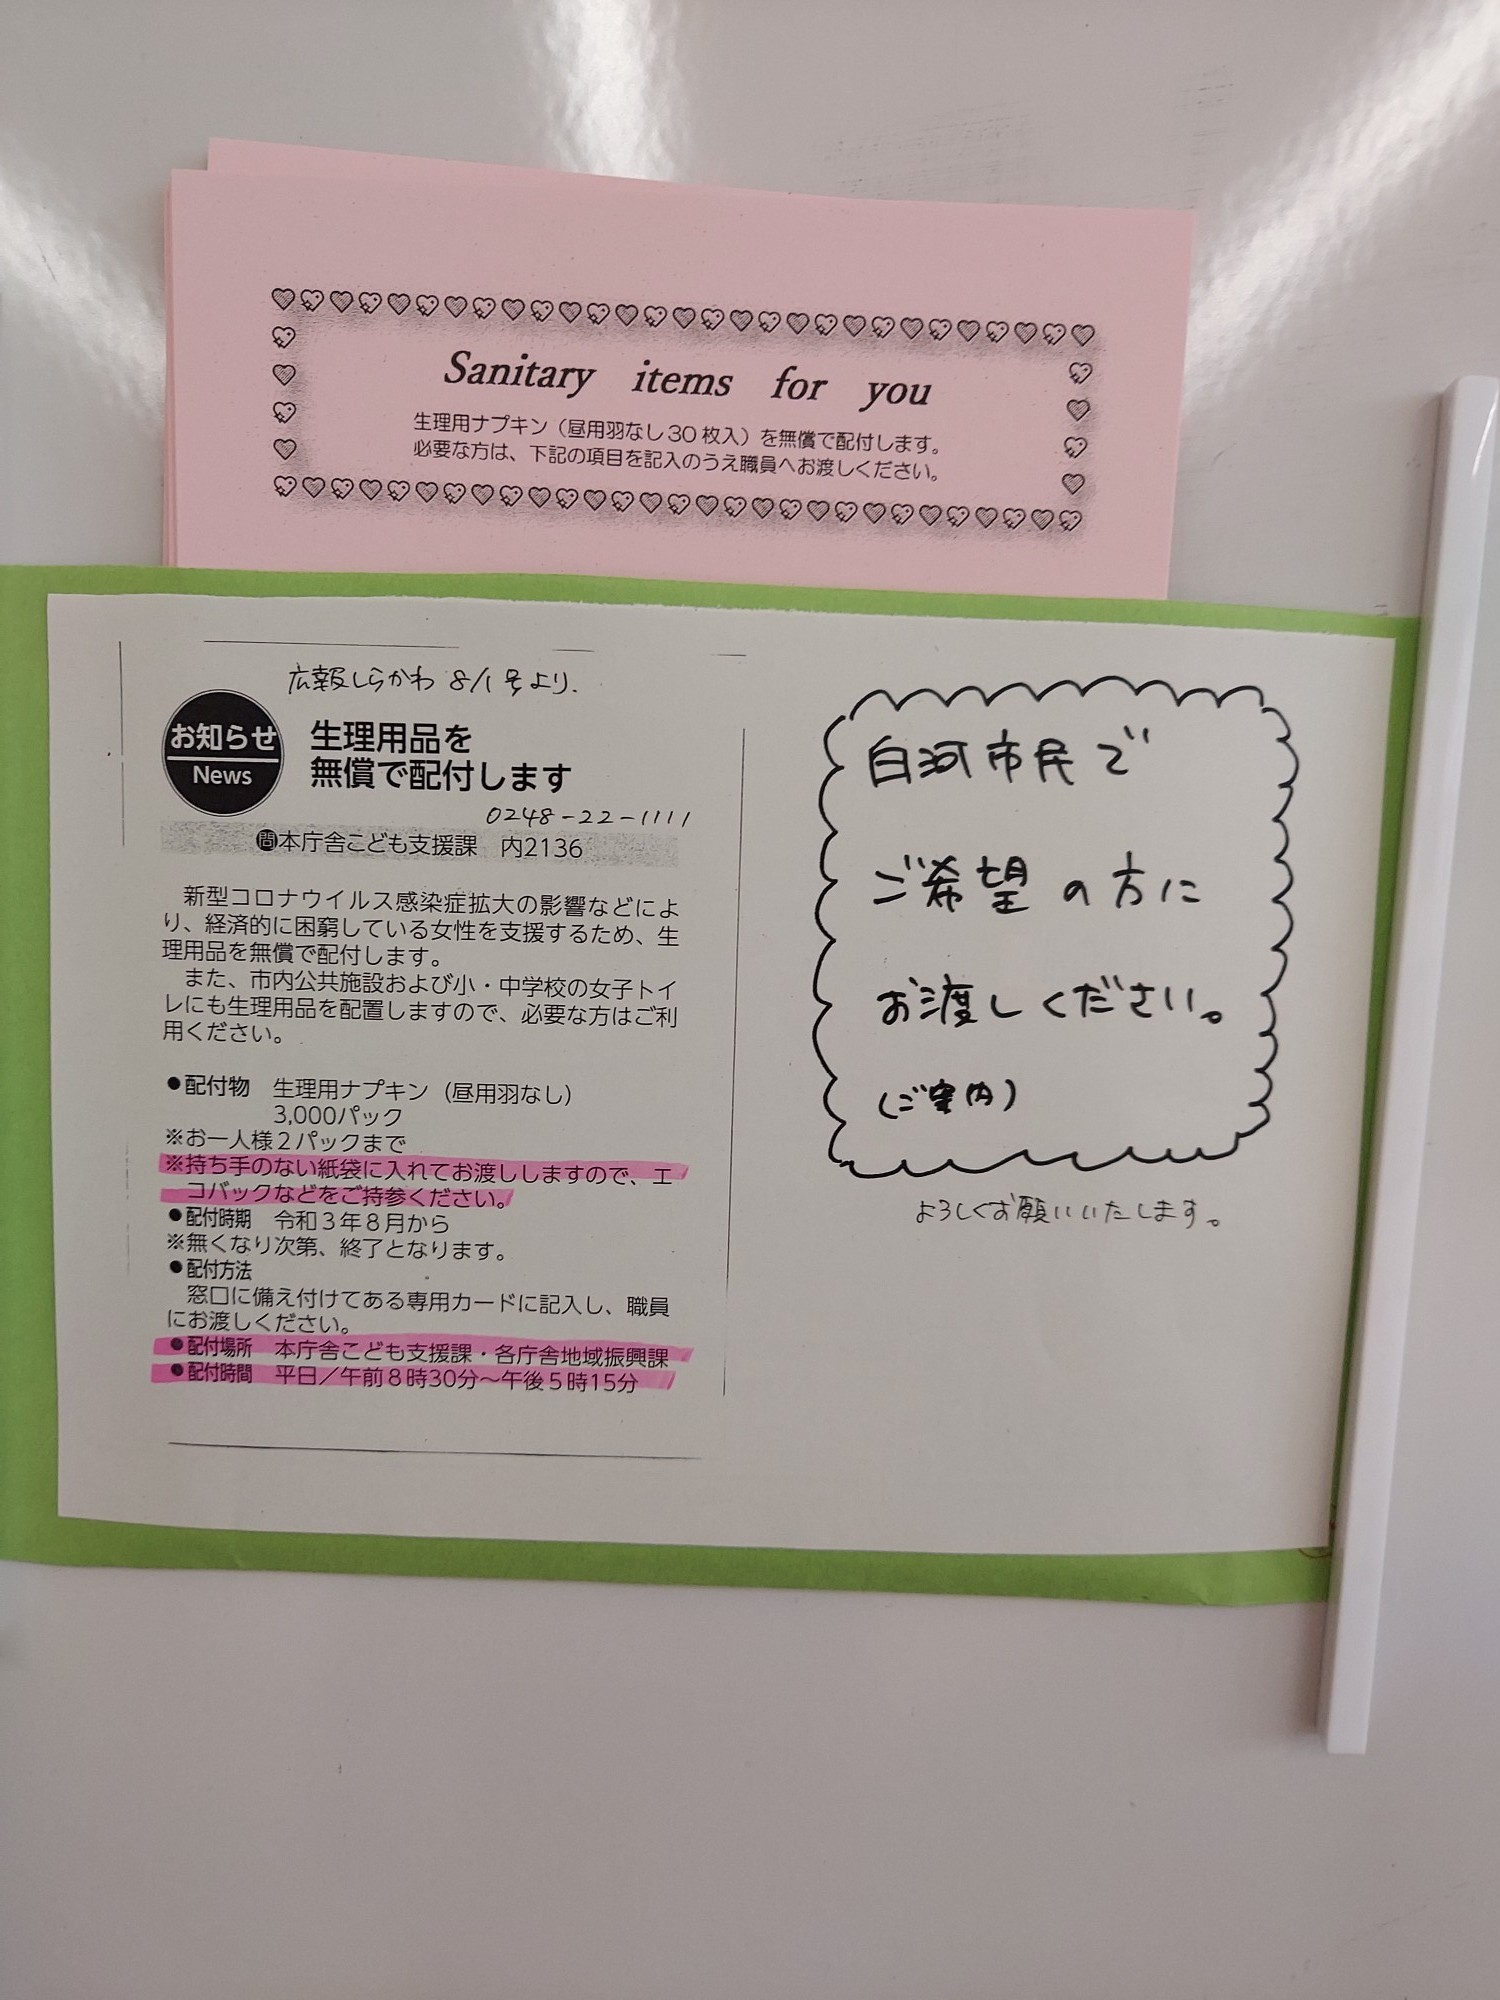 Sanitary items for you
生理用ナプキン（昼用羽なし30枚入）を無償で配付します。
必要な方は、下記の項目を記入のうえ職員へお渡しください。
広報しらかわ 8/1号より.
お知らせ
News
生理用品を
無償で配付します
0248-22-1111
問本庁舎こども支援課　内2136
新型コロナウイルス感染症拡大の影響などによ
り、経済的に困窮している女性を支援するため、生
理用品を無償で配付します。
また、市内公共施設および小・中学校の女子トイ
レにも生理用品を配置しますので、必要な方はご利
用ください。
●配付物　生理用ナプキン（昼用羽なし）
3,000パック
※お一人様２パックまで
※持ち手のない紙袋に入れてお渡ししますので、エ
コバックなどをご持参ください。
●配付時期　令和３年８月から
※無くなり次第、終了となります。
●配付方法
窓口に備え付けてある専用カードに記入し、職員
にお渡しください。
●配付場所　本庁舎こども支援課・各庁舎地域振興課
●配付時間　平日／午前８時30分～午後５時15分
白河市民で
ご希望の方に
お渡しください。
(ご案内)
よろしくお願いいたします。